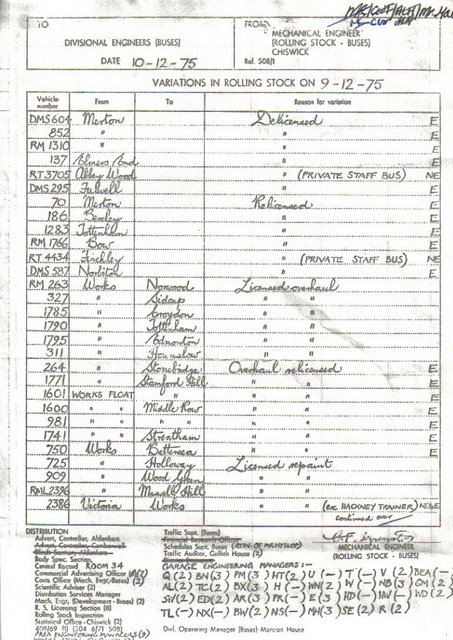 TO
FROM
MECHANICAL ENGINEER
DIVISIONAL ENGINEERS (BUSES)
(ROLLING STOCK - BUSES)
CHISWICK
DATE 10-12-75
Ref. 508/1
VARIATIONS IN ROLLING STOCK ON 9-12-75
Vehicle number From To Reason for variation
DMS 604 Merton Delicensed E
852 " " E
RM 1310 " " E
137 Elmers End " E
RT 3705 Abbey Wood " (PRIVATE STAFF BUS) NE
DMS 295 Fulwell " E
70 Merton Relicensed E
186 Bexley " E
1283 Tottenham " E
RM 1766 Bow " E
RT 4434 Finchley " (PRIVATE STAFF BUS) NE
DMS 587 Norbiton " E
RM 263 Works Norwood Licensed overhaul
327 " Sidcup " "
1785 " Croydon " "
1790 " Tottenham " "
1795 " Edmonton " "
311 " Hounslow " "
264 " Stonebridge Overhaul relicensed E
1771 " Stamford Hill " " E
1601 WORKS FLOAT " " " E
1600 " " Middle Row " " E
981 " " " " " " E
1741 " " Streatham " " E
750 Works Battersea " " E
725 " Holloway Licensed repaint
909 " Wood Green " "
RML 2396 " Muswell Hill " "
2386 Victoria Works (ex HACKNEY TRAINER) NE&E
continued over
DISTRIBUTION
Advert. Controller, Aldenham
Body Supt. Spec. Duties
Central Record ROOM 34
Commercial Advertising Officer (2)
Coms Office (Mech. Engr.-Buses) (2)
Scientific Adviser (2)
Distribution Services Manager
Mech. Engr. (Development - Buses) (2)
R. S. Licensing Section (8)
Rolling Stock Inspection
Statistical Office - Chiswick (2)
AREA ENGINEERING MANAGERS (9)
Traffic Supt. (Buses)
Schedules Supt. Buses (ATTN. OF MR. HYSLOP)
Traffic Auditor, Griffith House (2)
MECHANICAL ENGINEER
(ROLLING STOCK - BUSES)
GARAGE ENGINEERING MANAGERS :-
Divl. Operating Manager (Buses) Mansion House